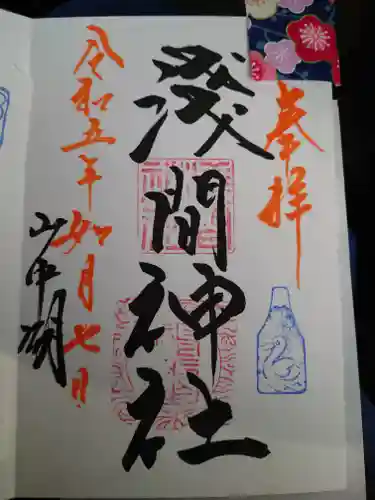 奉拝
浅間神社
令和五年如月七日
山中湖